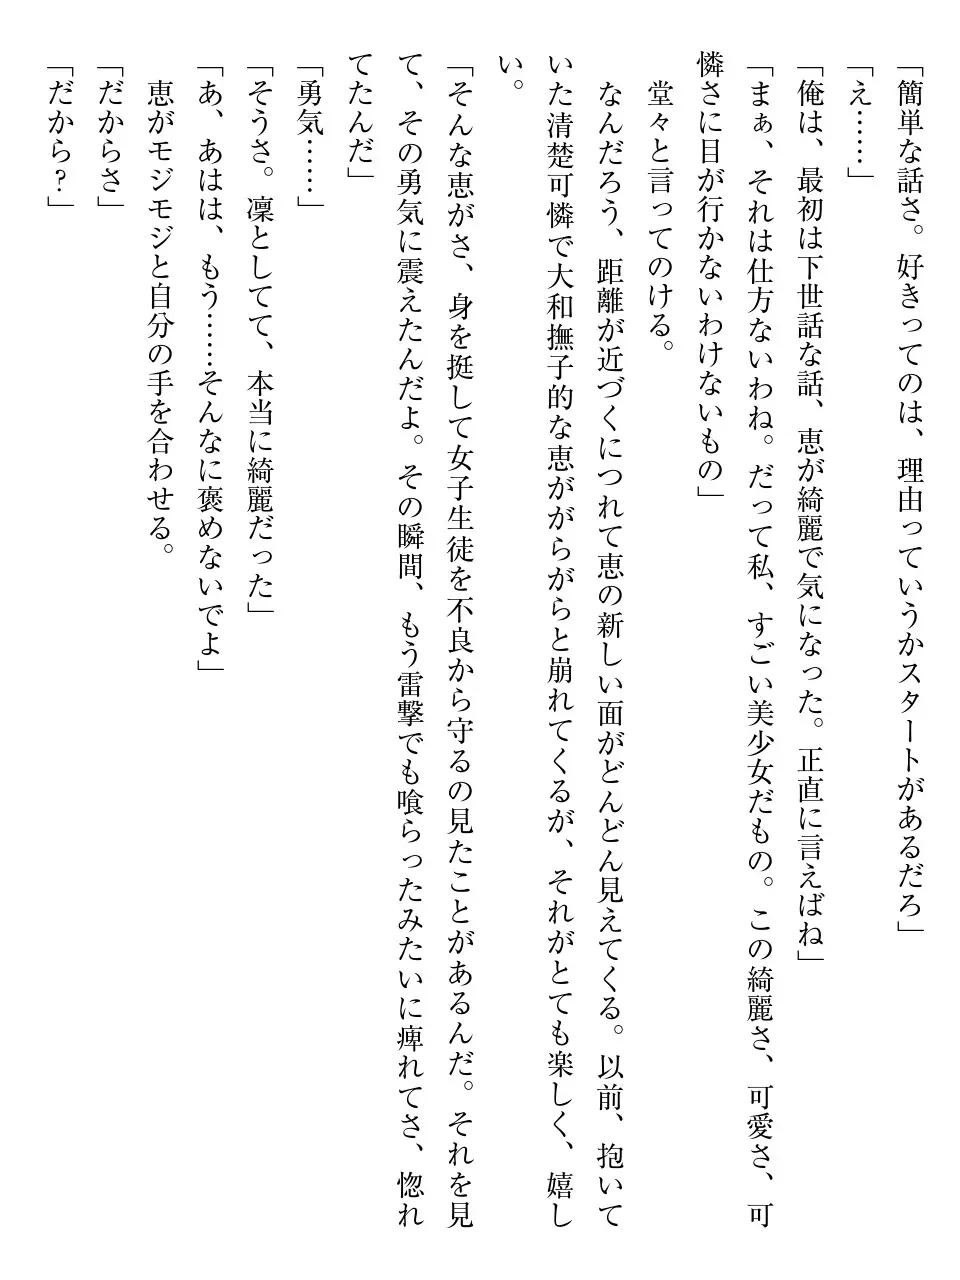 「簡単な話さ。好きってのは、理由っていうかスタートがあるだろ」
「え……」
「俺は、最初は下世話な話、恵が綺麗で気になった。正直に言えばね」
「まぁ、それは仕方ないわね。だって私、すごい美少女だもの。この綺麗さ、可愛さ、可
憐さに目が行かないわけないもの」
　堂々と言ってのける。
　なんだろう、距離が近づくにつれて恵の新しい面がどんどん見えてくる。以前、抱いて
いた清楚可憐で大和撫子的な恵ががらがらと崩れてくるが、それがとても楽しく、嬉し
い。
「そんな恵がさ、身を挺して女子生徒を不良から守るの見たことがあるんだ。それを見
て、その勇気に震えたんだよ。その瞬間、もう雷撃でも喰らったみたいに痺れてさ、惚れ
てたんだ」
「勇気……」
「そうさ。凜としてて、本当に綺麗だった」
「あ、あはは、もう……そんなに褒めないでよ」
　恵がモジモジと自分の手を合わせる。
「だからさ」
「だから?」